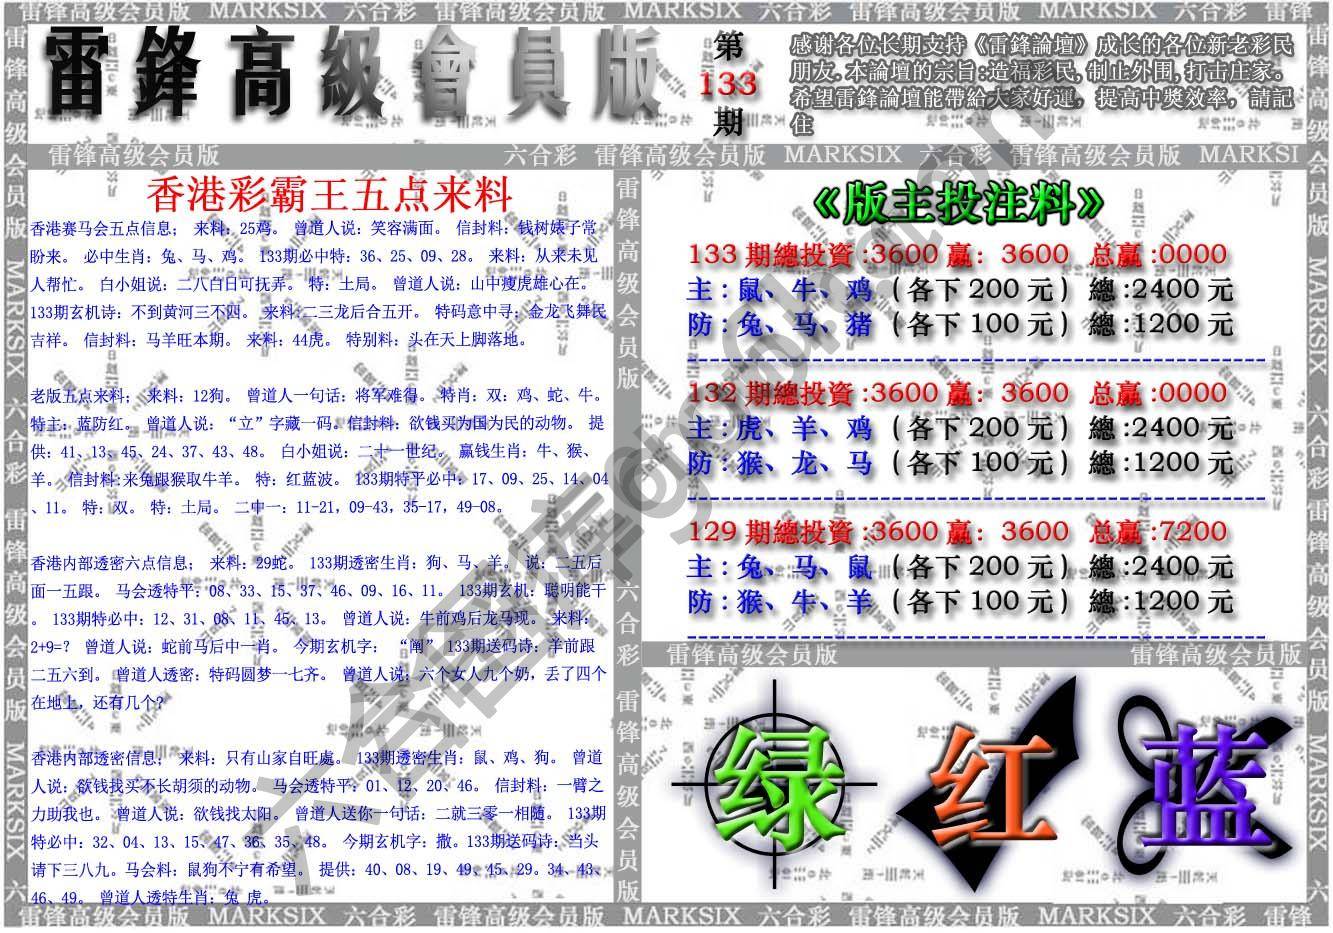 雷锋高级会员版 MARKSIX 六合彩 雷锋高级会员版 MARKSIX 六合彩 雷锋高级会员版 MARKSIX 六合彩 雷锋
雷鋒高級會員版
第
133
期
感谢各位长期支持《雷鋒論壇》成长的各位新老彩民
朋友.本論壇的宗旨:造福彩民,制止外围,打击庄家。
希望雷鋒論壇能帶給大家好運,提高中獎效率,請記
住
雷锋高级会员版 六合彩 雷锋高级会员版 MARKSIX 六合彩 雷锋高级会员版 MARKSI
香港彩霸王五点来料
香港赛马会五点信息; 来料:25鸡。 曾道人说:笑容满面。 信封料:钱树婊子常
盼来。 必中生肖:兔、马、鸡。 133期必中特:36、25、09、28。 来料:从来未见
人帮忙。 白小姐说:二八白日可抚弄。 特:土局。 曾道人说:山中瘦虎雄心在。
133期玄机诗:不到黄河三不四。 来料:二三龙后合五开。 特码意中寻:金龙飞舞民
吉祥。 信封料:马羊旺本期。 来料:44虎。 特别料:头在天上脚落地。
老版五点来料; 来料:12狗。 曾道人一句话:将军难得。 特肖:双:鸡、蛇、牛。
特主:蓝防红。 曾道人说:“立”字藏一码。信封料:欲钱买为国为民的动物。 提
供:41、13、45、24、37、43、48。 白小姐说:二十一世纪。 赢钱生肖:牛、猴、
羊。 信封料:来兔跟猴取牛羊。 特:红蓝波。 133期特平必中:17、09、25、14、04
、11。 特:双。 特:土局。 二中一:11-21,09-43,35-17,49-08。
香港内部透密六点信息; 来料:29蛇。 133期透密生肖:狗、马、羊。 说:二五后
面一五跟。 马会透特平:08、33、15、37、46、09、16、11。 133期玄机:聪明能干
。 133期特必中:12、31、08、11、45、13。 曾道人说:牛前鸡后龙马现。 来料:
2+9=? 曾道人说:蛇前马后中一肖。 今期玄机字: “阐” 133期送码诗:羊前跟
二五六到。 曾道人透密:特码圆梦一七齐。 曾道人说:六个女人九个奶,丢了四个
在地上,还有几个?
香港内部透密信息; 来料:只有山家自旺處。 133期透密生肖:鼠、鸡、狗。 曾道
人说:欲钱找买不长胡须的动物。 马会透特平:01、12、20、46。 信封料:一臂之
力助我也。 曾道人说:欲钱找太阳。 曾道人送你一句话:二就三零一相随。 133期
特必中:32、04、13、15、47、36、35、48。 今期玄机字:撒。133期送码诗:当头
请下三八九。马会料:鼠狗不宁有希望。 提供:40、08、19、49、45、29。34、43、
46、49。 曾道人透特生肖:兔 虎。
《版主投注料》
133 期總投資 :3600 赢: 3600 总赢 :0000
主 : 鼠、牛、鸡 ( 各下 200 元 ) 總 :2400 元
防 : 兔、马、猪 ( 各下 100 元 ) 總 :1200 元
132 期總投資 :3600 赢: 3600 总赢 :0000
主 : 虎、羊、鸡 ( 各下 200 元 ) 總 :2400 元
防 : 猴、龙、马 ( 各下 100 元 ) 總 :1200 元
129 期總投資 :3600 赢: 3600 总赢 :7200
主 : 兔、马、鼠 ( 各下 200 元 ) 總 :2400 元
防 : 猴、牛、羊 ( 各下 100 元 ) 總 :1200 元
雷锋高级会员版 雷锋高级会员版
绿 红 蓝
雷锋高级会员版 MARKSIX 六合彩 雷锋高级会员版 MARKSIX 六
雷锋高级会员版 六合彩 雷锋高级会员版
雷锋高级会员版 MARKSIX 六合彩 雷锋高级会员版 MARKSIX 六
雷锋高级会员版 MARKSIX 六合彩 雷锋高级会员版 MARKSIX 六合彩 雷锋高级会员版 MARKSIX 六合彩 雷锋